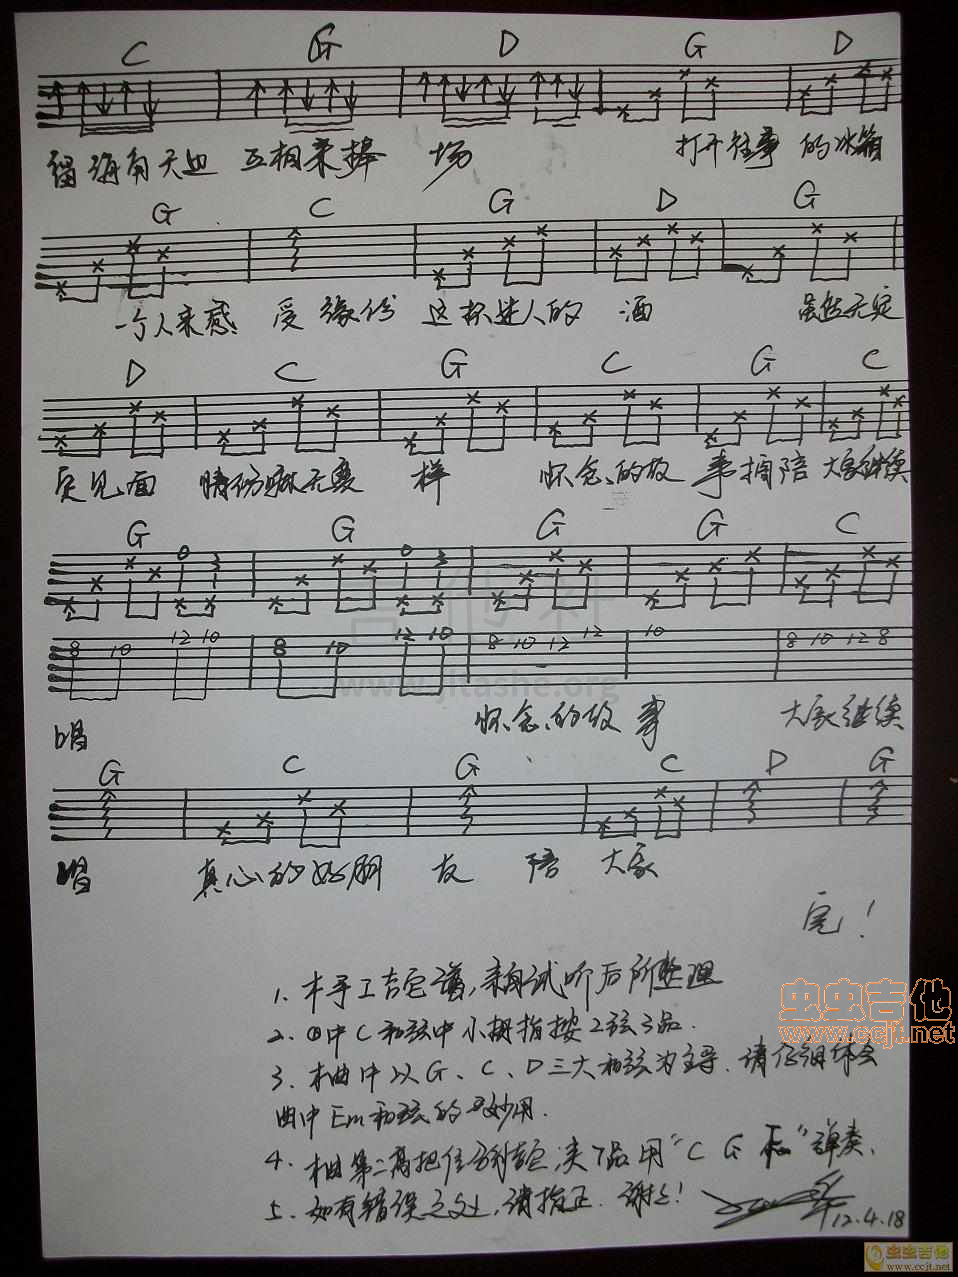 C G D G D
海角天边 互相来捧 场 打开往事 的冰箱
G C G D G
一个人来感 受 缘份 这杯迷人的 酒 虽然无定
D C G C G C
见面 情份 无变 样 怀念的故 事 陪 大家继续
G G G G C
0 3 0 3
8 10 12 10 8 10 12 10 8 10 12 12 10 8 10 12 8
唱 怀念的故 事 大家继续
G C G C D G
唱 真心的好朋 友 陪 大家
完！
1. 本手工吉它谱，亲自试听后所整理
2. ①中C和弦中小拇指按2弦3品.
3. 本曲中以G、C、D三大和弦为主导. 请仔细体会
曲中Em和弦的妙用.
4. 本曲第二高把位 夹7品用"C G "弹奏.
5. 如有错误之处，请指正. 谢谢！
12.4.18
吉他社
www.jitashe.org
虫虫吉他
www.ccjt.net
虫虫吉他
www.ccjt.net